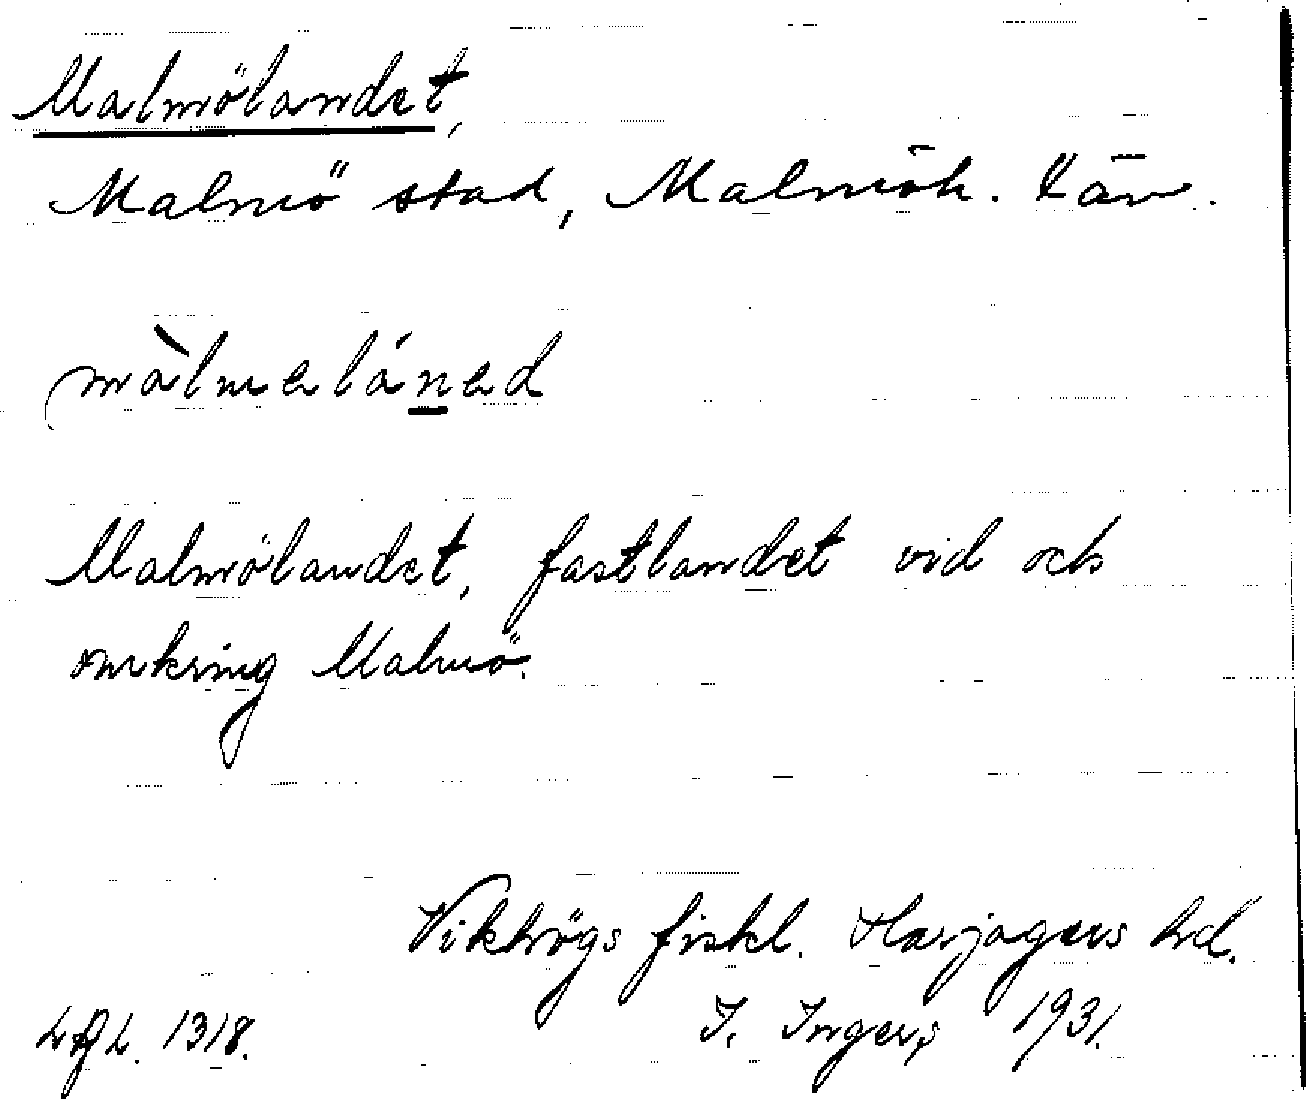 Malmölandet,
Malmö stad, Malmöh. län.
màlmeláned
Malmölandet, fastlandet vid och
omkring Malmö.
Vikhögs fiskl. Harjagers hd.
1318. I. Ingers, 1931.